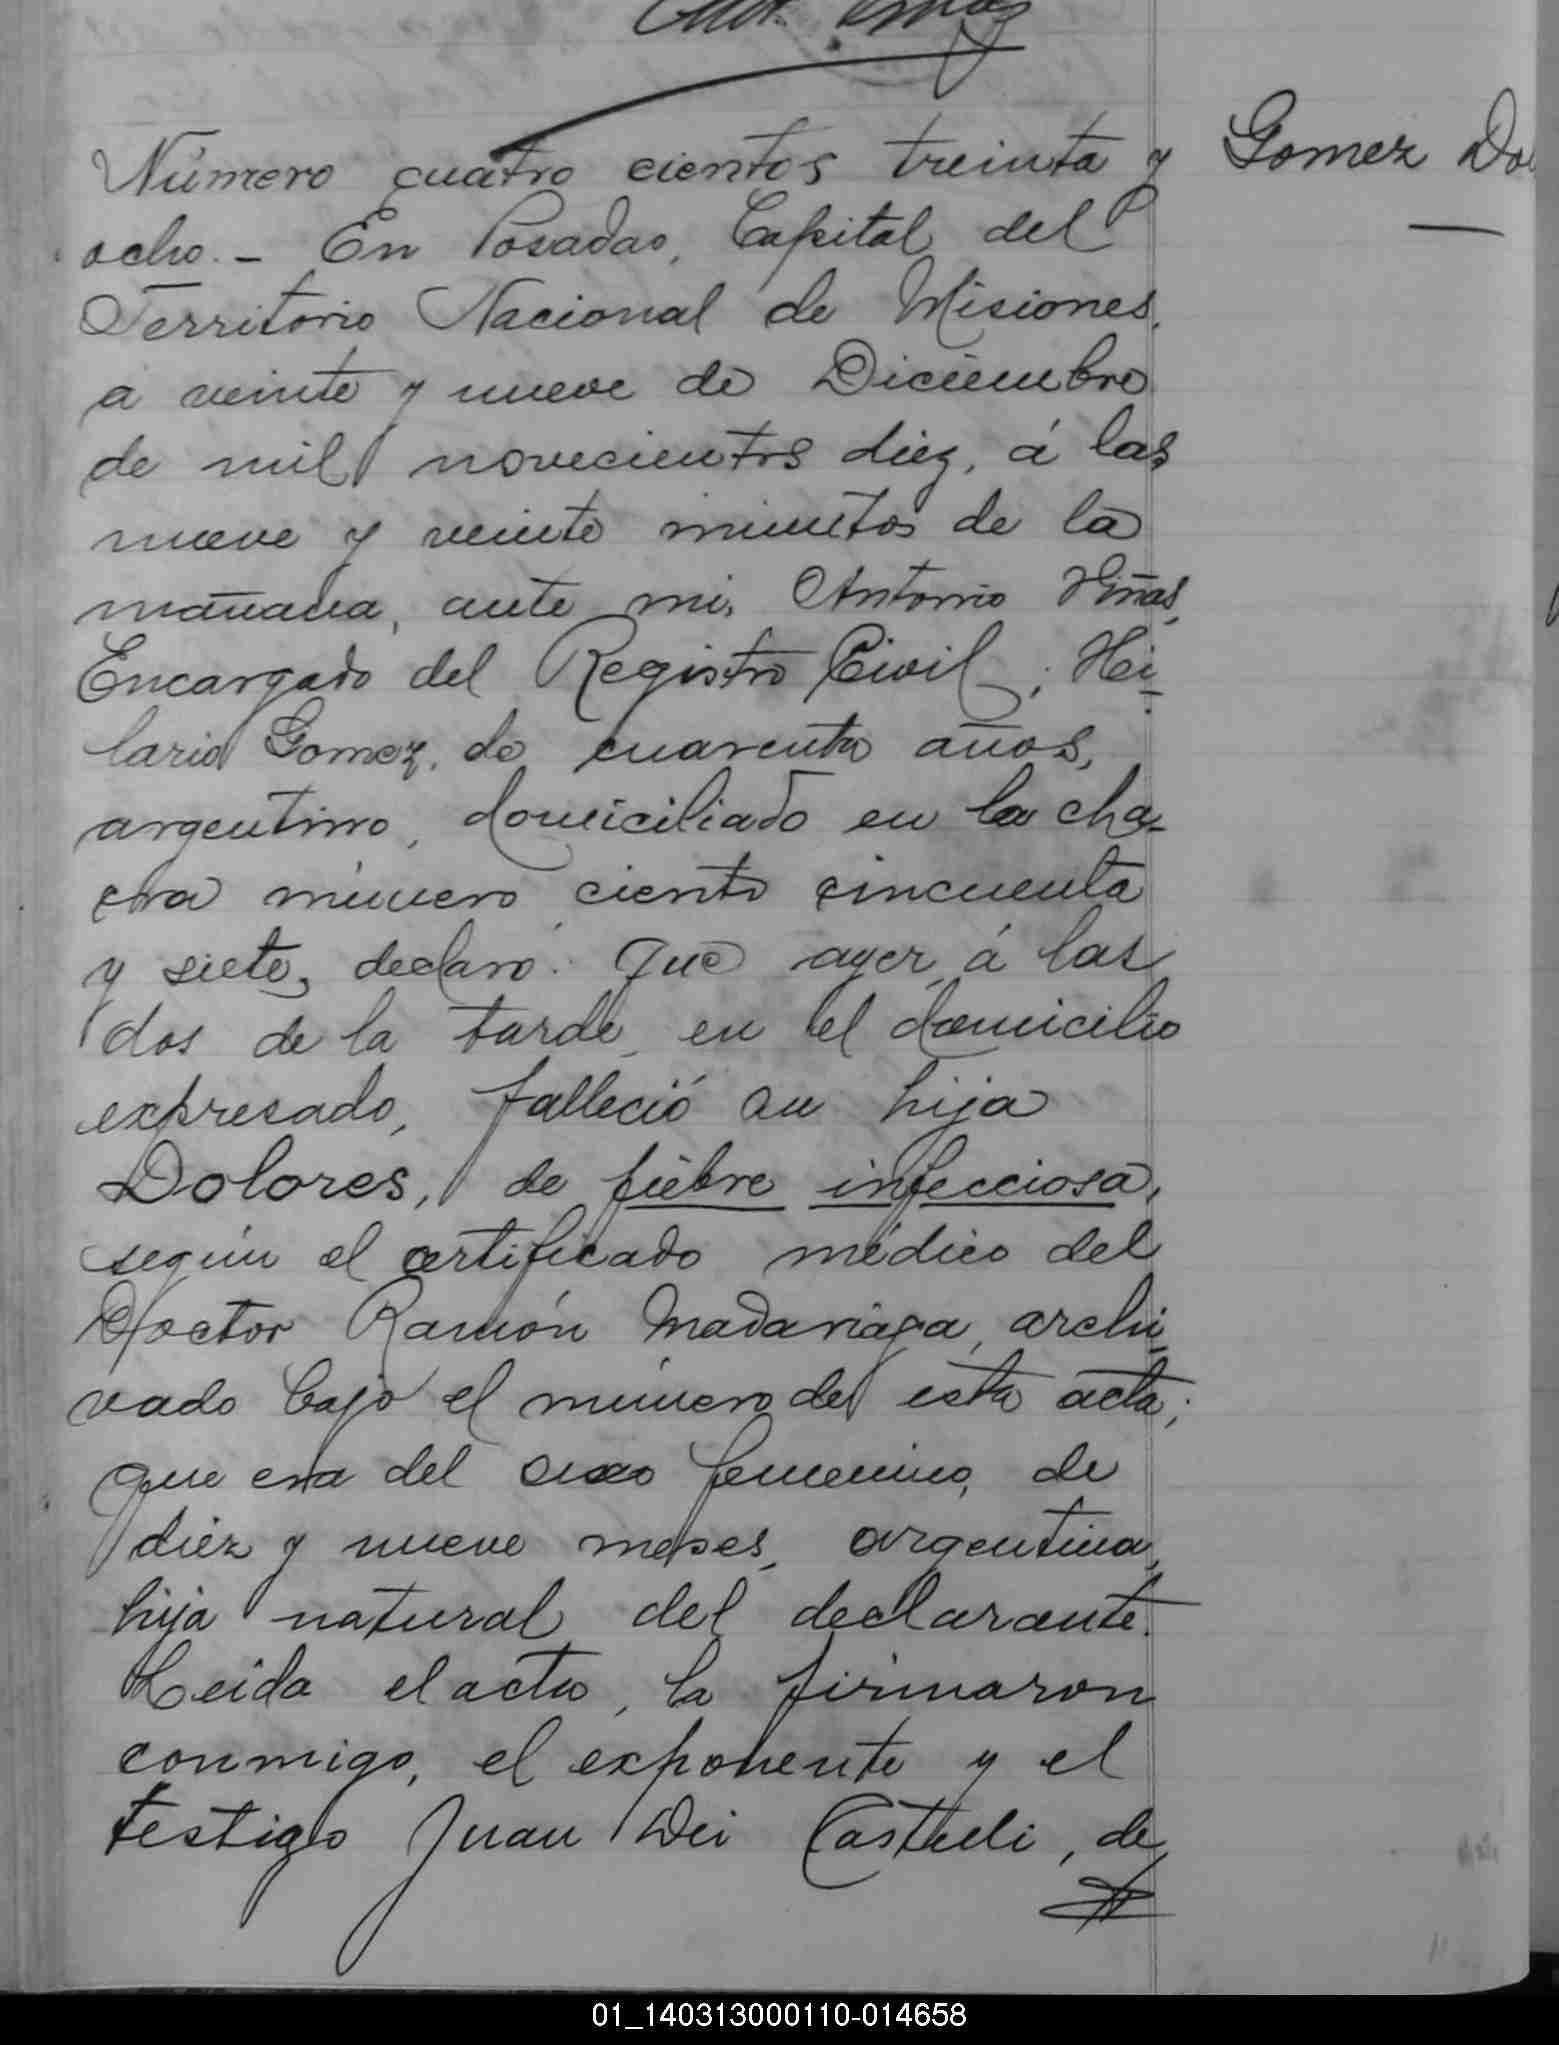 Número cuatro cientos treinta y
ocho. - En Posadas, Capital del
Territorio Nacional de Misiones,
a veinte y nueve de Diciembre
de mil novecientos diez, á las
nueve y veinte minutos de la
mañana, ante mi, Antonio Viñas,
Encargado del Registro Civil; Hi-
lario Gomez, de cuarenta años,
argentino, domiciliado en la cha-
cra número ciento cincuenta
y siete, declaró: Que ayer, á las
dos de la tarde, en el domicilio
expresado, falleció su hija
Dolores, de fiebre infecciosa,
según el certificado médico del
Doctor Ramón Madariaga, archi-
vado bajo el número de esta acta;
que era del sexo femenino, de
diez y nueve meses, argentina,
hija natural del declarante.
Leida el acta, la firmaron
conmigo, el exponente y el
testigo Juan Dei Castelli, de
Gomez
01_140313000110-014658